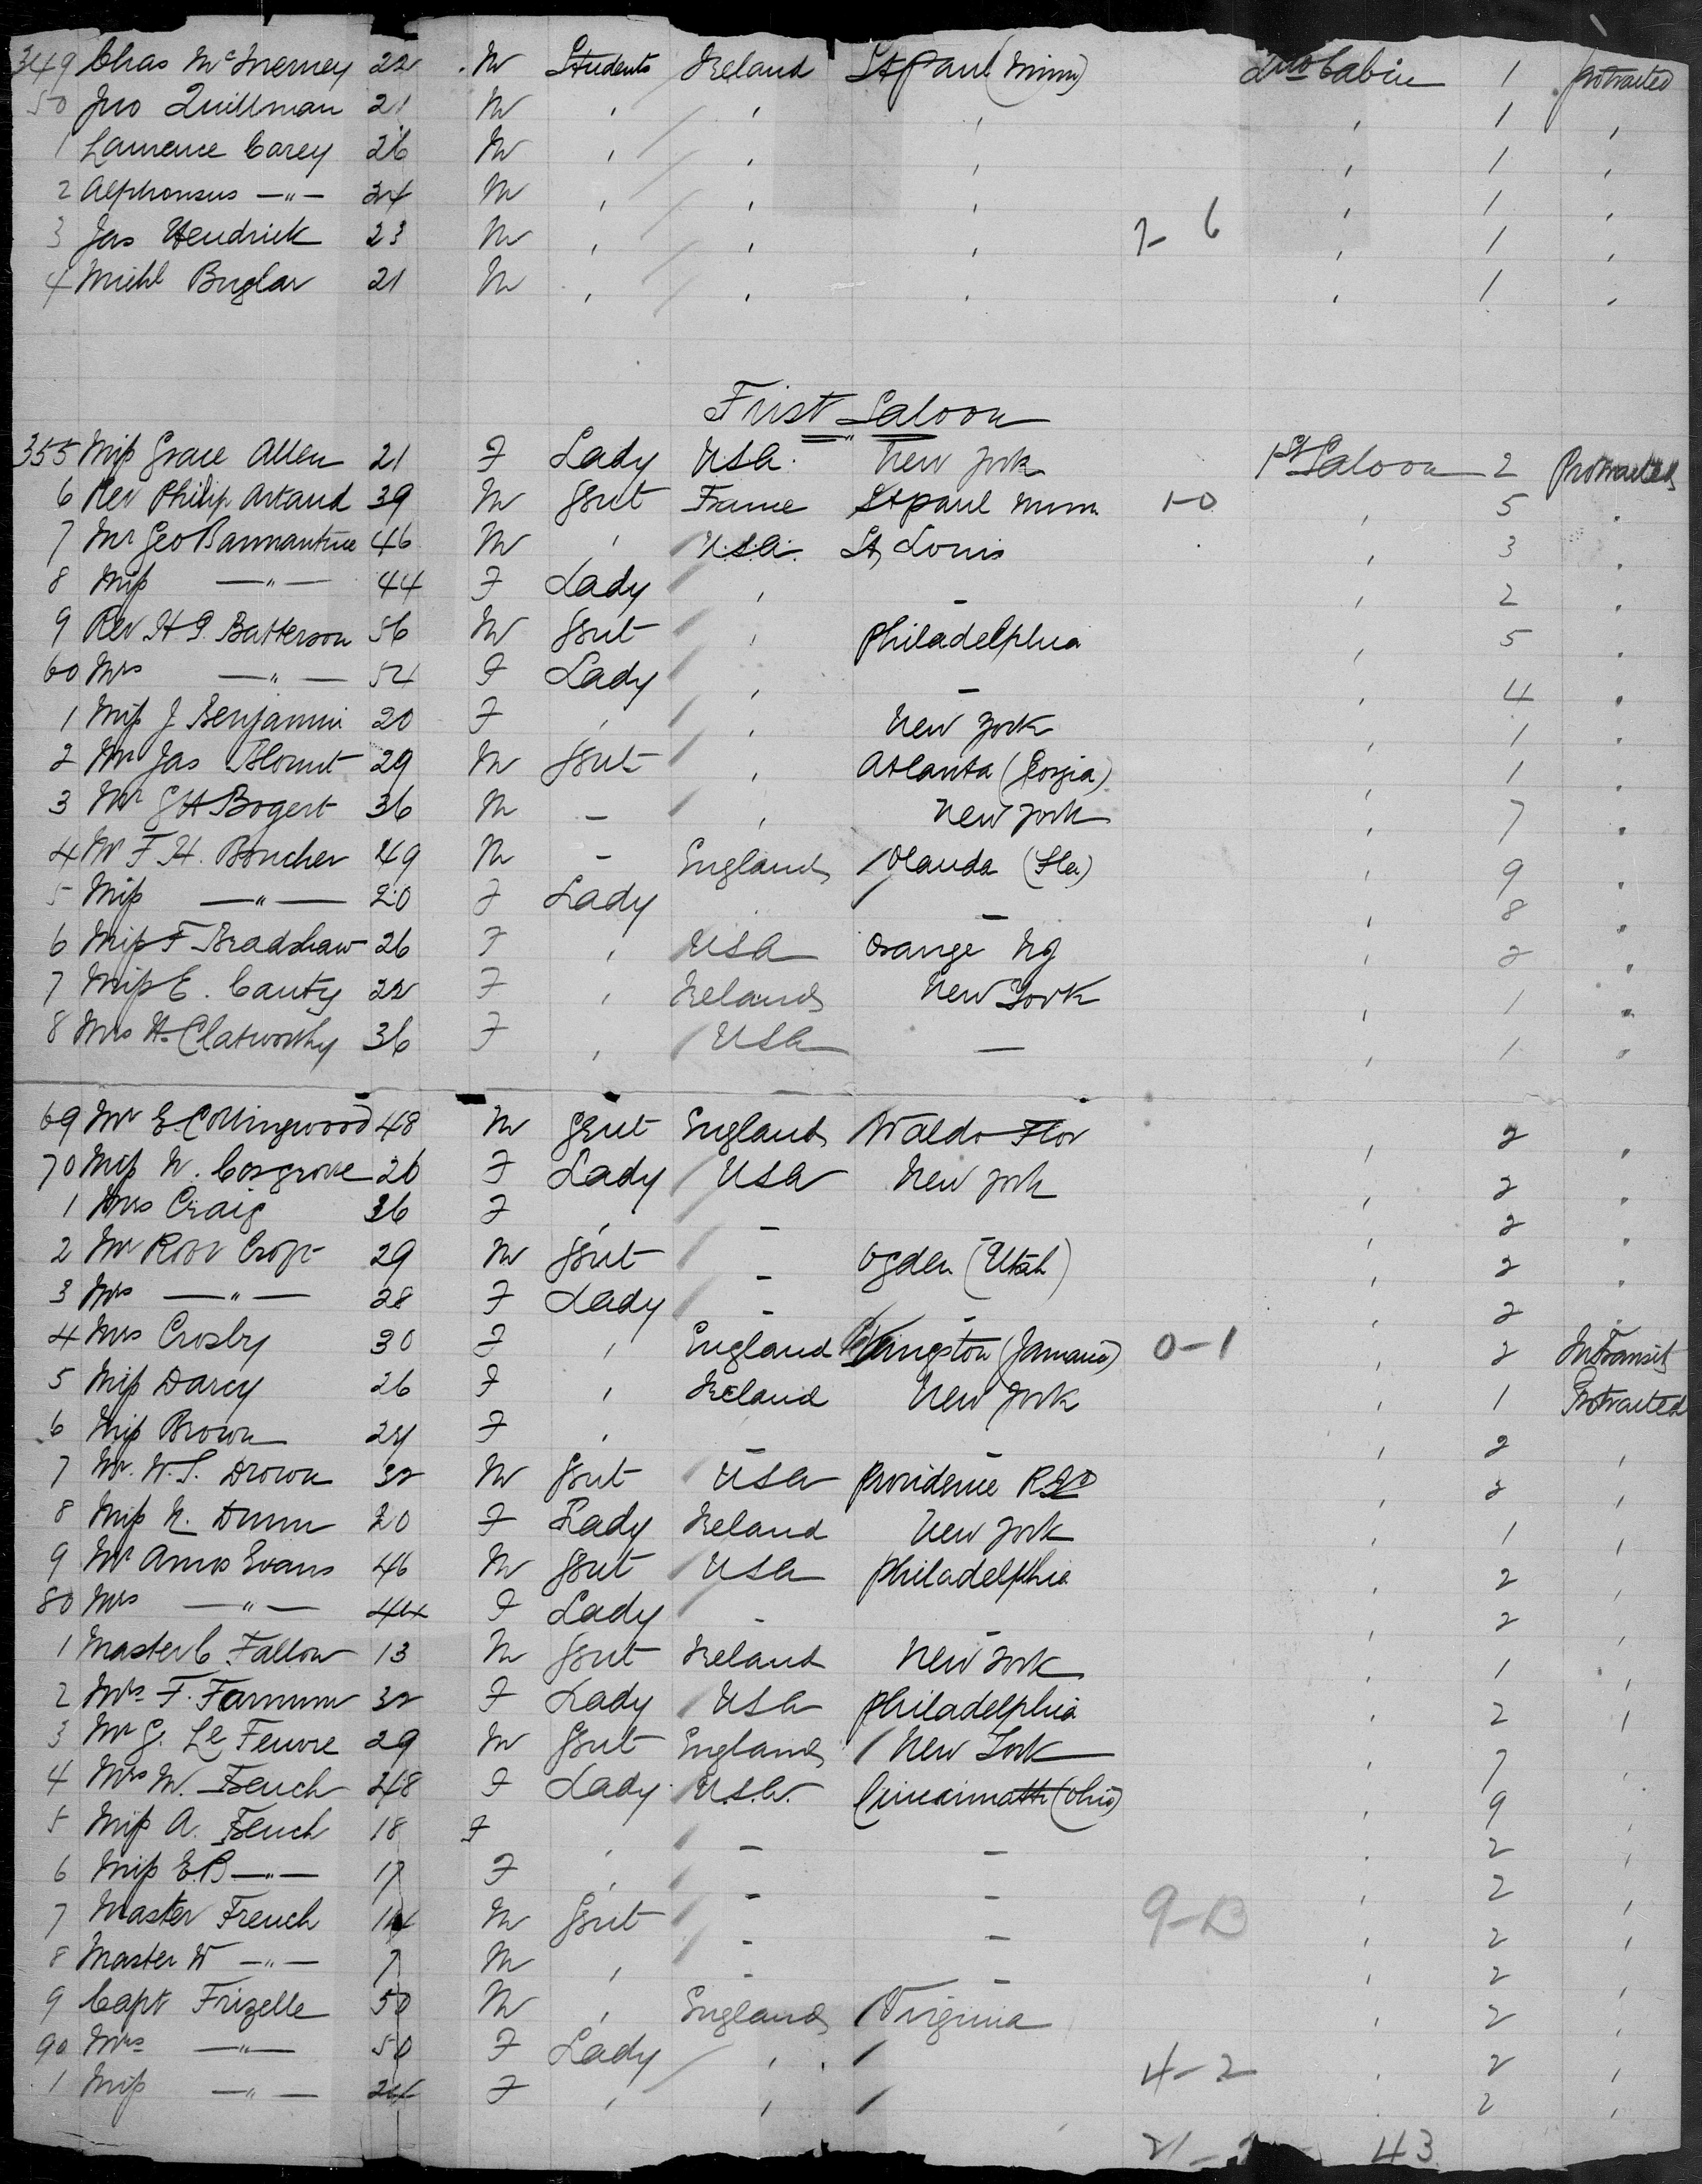 349 Chas McInerney 22 M Students Ireland St Paul (Minn) 2nd Cabin 1 protracted
50 Jno Quillman 21 M , , , , 1 ,
1 Laurence Carey 26 M , , , , 1 ,
2 Alphonsus —"— 24 M , , , , 1 ,
3 Jas Hendrick 23 M , , , 6 , 1 ,
4 Michl Buglar 21 M , , , , 1 ,
First Saloon
355 Miss Grace Allen 21 F Lady USA. New York 1st Saloon 2 Protracted
6 Rev Philip Artaud 39 M Gent France St Paul Minn 1-0 , 5 "
7 Mr Geo Bannantine 46 M , U.S.A. St Louis , 3 "
8 Miss —"— 44 F Lady , – , 2 "
9 Rev H G. Batterson 56 M Gent , Philadelphia , 5 "
60 Mrs —"— 54 F Lady , – , 4 "
1 Miss J Benjamin 20 F , , New York , 1 "
2 Mr Jas Blount 29 M Gent , Atlanta (Georgia) , 1 "
3 Mr G H Bogert 36 M – , New York , 7 "
4 Mr F. H. Boucher 49 M – England (Fla) , 9 "
5 Miss —"— 20 F Lady , – , 8 "
6 Miss F Bradshaw 26 F , USA Orange NJ , 2 "
7 Miss E. Canty 22 F , Ireland New York , 1 "
8 Mrs H. Clatworthy 36 F , USA — , 1 "
69 Mr E Collingwood 48 M Gent England Waldo Flor , 2 "
70 Miss N. Cosgrove 26 F Lady USA New York , 2 "
1 Mrs Craig 36 F , – – , 2 "
2 Mr Robt Croft 29 M Gent – Ogden (Utah) , 2 "
3 Mrs —"— 28 F Lady – , 2 "
4 Mrs Crosby 30 F , England Kingston (Jamaica) 0-1 , 2 In Transit
5 Miss Darcy 26 F , Ireland New York , 1 Protracted
6 Miss Brown 24 F , – – , 2 ,
7 Mr. W. S. Drown 32 M Gent USA Providence , 2 ,
8 Miss N. Dunn 20 F Lady Ireland New York , 1 ,
9 Mr Amos Evans 46 M Gent USA Philadelphia , 2 ,
80 Mrs —"— 44 F Lady – – , 2 ,
1 Master C Fallon 13 M Gent Ireland New York , 1 ,
2 Mrs F. Farnum 32 F Lady USA Philadelphia , 2 ,
3 Mr G. Le Feuvre 29 M Gent England New York , 7 ,
4 Mrs M. French 48 F Lady U.S.A. Cincinnatti (Ohio) , 9 ,
5 Miss A. French 18 F , – – , 2 ,
6 Miss E.B —"— 17 F , – – , 2 ,
7 Master French 14 M Gent – – , 2 ,
8 Master W —"— 7 M , – – , 2 ,
9 Capt Frizelle 50 M , England Virginia , 2 ,
90 Mrs —"— 50 F Lady , , 4-2 , 2 ,
1 Miss —"— 24 F , , , 2 ,
43